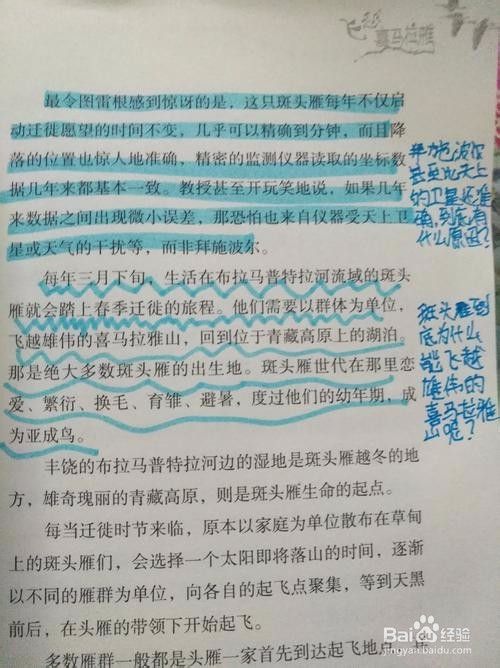 飞越
喜马拉雅
最令图雷根感到惊讶的是，这只斑头雁每年不仅启
动迁徙愿望的时间不变，几乎可以精确到分钟，而且降
落的位置也惊人地准确，精密的监测仪器读取的坐标数
据几年来都基本一致。教授甚至开玩笑地说，如果几年
来数据之间出现微小误差，那恐怕也来自仪器受天上卫
星或天气的干扰等，而非拜施波尔。
每年三月下旬，生活在布拉马普特拉河流域的斑头
雁就会踏上春季迁徙的旅程。他们需要以群体为单位，
飞越雄伟的喜马拉雅山，回到位于青藏高原上的湖泊。
那是绝大多数斑头雁的出生地。斑头雁世代在那里恋
爱、繁衍、换毛、育雏、避暑，度过他们的幼年期，成
为亚成鸟。
丰饶的布拉马普特拉河边的湿地是斑头雁越冬的地
方，雄奇瑰丽的青藏高原，则是斑头雁生命的起点。
每当迁徙时节来临，原本以家庭为单位散布在草甸
上的斑头雁们，会选择一个太阳即将落山的时间，逐渐
以不同的雁群为单位，向各自的起飞点聚集，等到天黑
前后，在头雁的带领下开始起飞。
多数雁群一般都是头雁一家首先到达起飞地点，在
施波尔
甚至比天上
的卫星还准
确，到底有
什么原因？
斑头雁到
底为什么
能飞越
雄伟的
喜马拉雅
山呢？
Baidu经验
jingyan.baidu.com